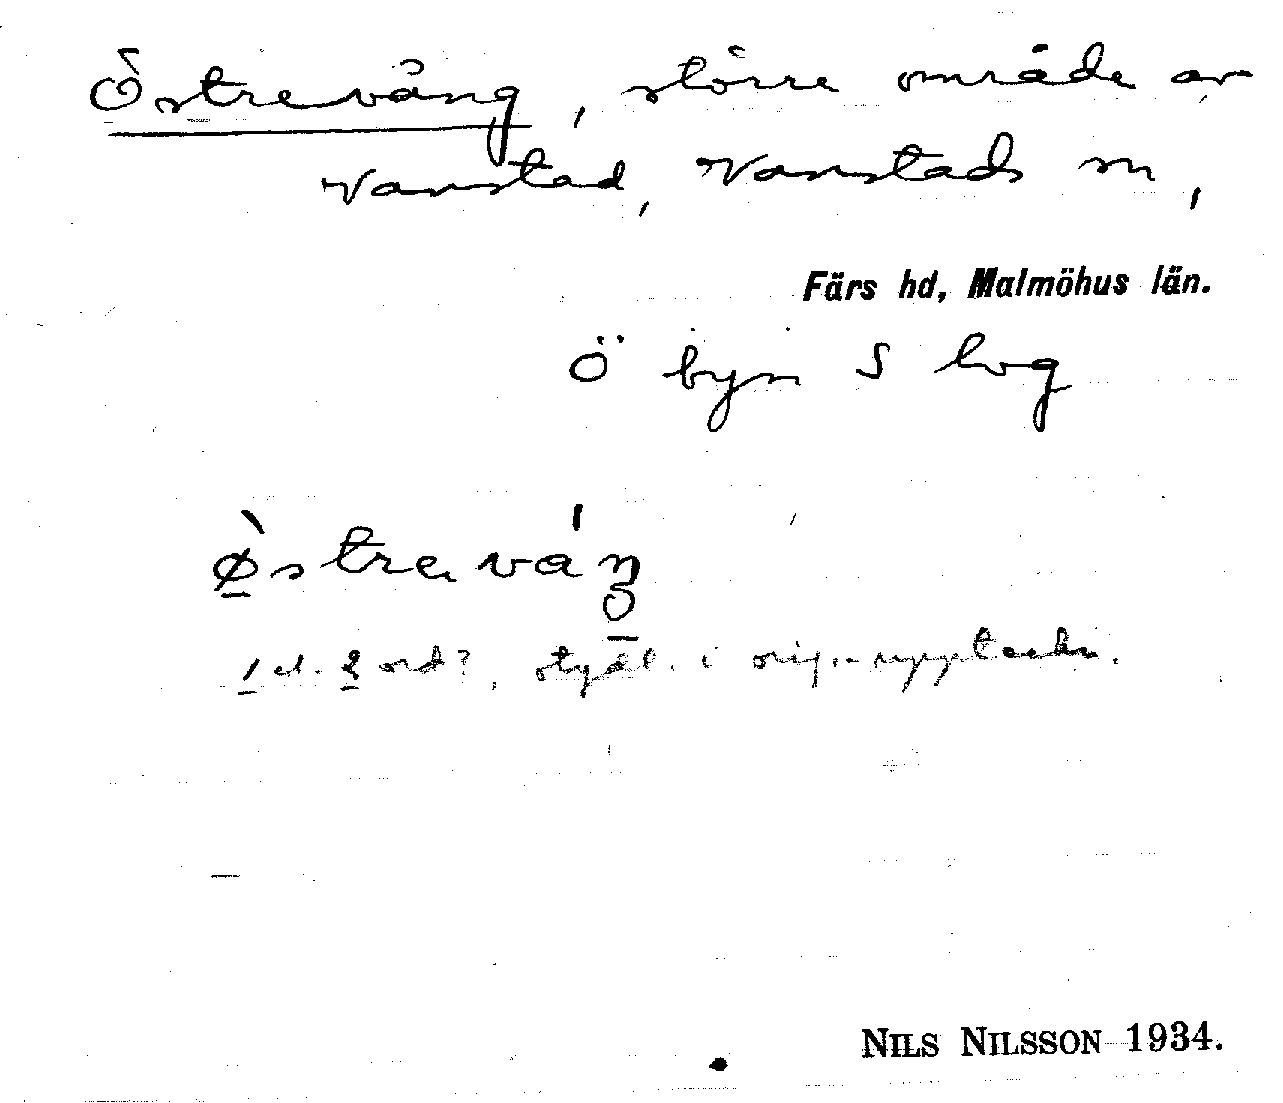 Östrevång, större område av
Vanstad, Vanstads sn,
Färs hd, Malmöhus län.
Ö byn S lvg
Østre vaŋ
1 el. 2 ord?, otydl. i orig.-uppteckn.
NILS NILSSON 1934.